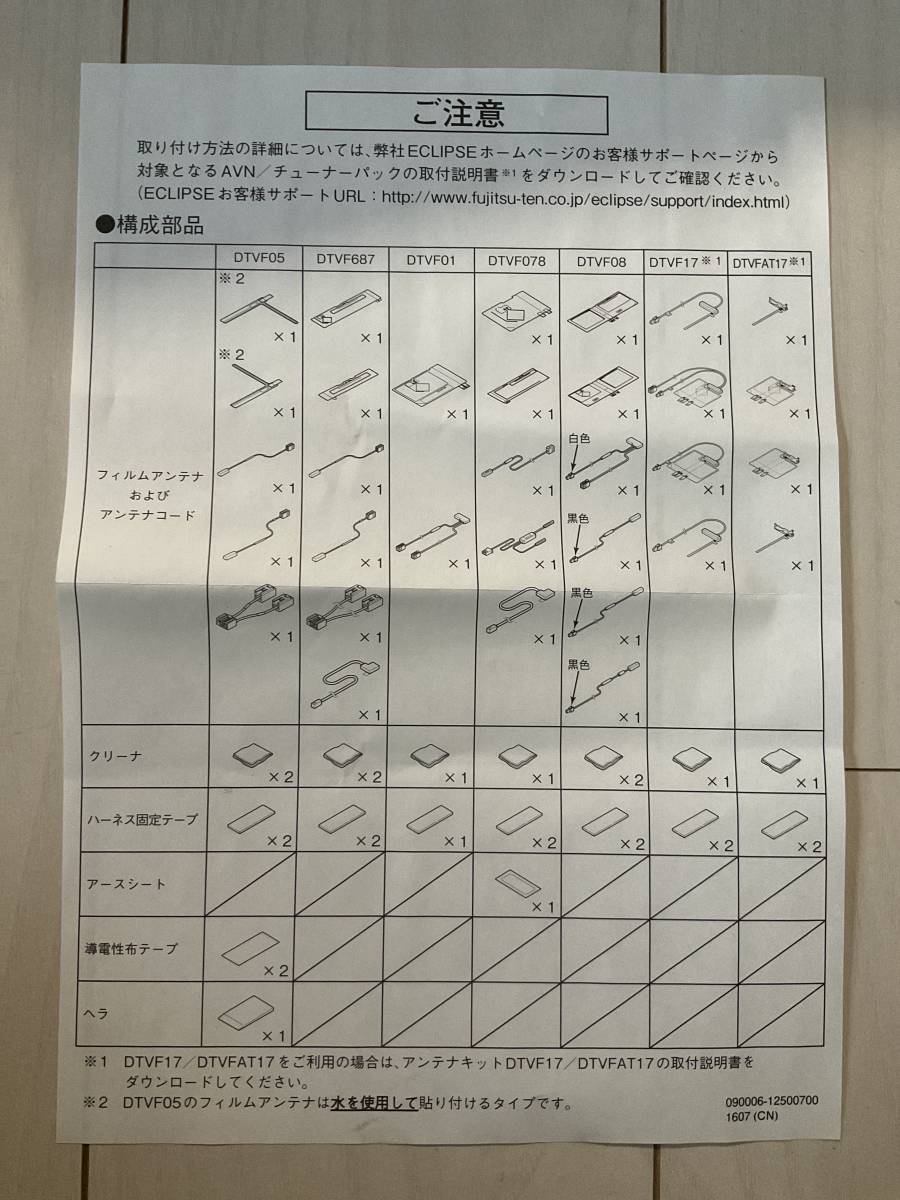 ご注意
取り付け方法の詳細については、弊社ECLIPSEホームページのお客様サポートページから
対象となるAVN／チューナーパックの取付説明書※1をダウンロードしてご確認ください。
(ECLIPSEお客様サポートURL：http://www.fujitsu-ten.co.jp/eclipse/support/index.html)
●構成部品
DTVF05 DTVF687 DTVF01 DTVF078 DTVF08 DTVF17※1 DTVFAT17※1
※2
×1 ×1 ×1 ×1 ×1 ×1
※2
×1 ×1 ×1 ×1 ×1 ×1 ×1
白色
フィルムアンテナ
および
アンテナコード
×1 ×1 ×1 ×1 ×1 ×1
黒色
×1 ×1 ×1 ×1 ×1 ×1 ×1
黒色
×1 ×1 ×1 ×1
黒色
×1 ×1
クリーナ ×2 ×2 ×1 ×1 ×2 ×1 ×1
ハーネス固定テープ ×2 ×2 ×1 ×2 ×2 ×2 ×2
アースシート ×1
導電性布テープ ×2
ヘラ ×1
※1 DTVF17／DTVFAT17をご利用の場合は、アンテナキットDTVF17／DTVFAT17の取付説明書を
ダウンロードしてください。
※2 DTVF05のフィルムアンテナは水を使用して貼り付けるタイプです。
090006-12500700
1607 (CN)